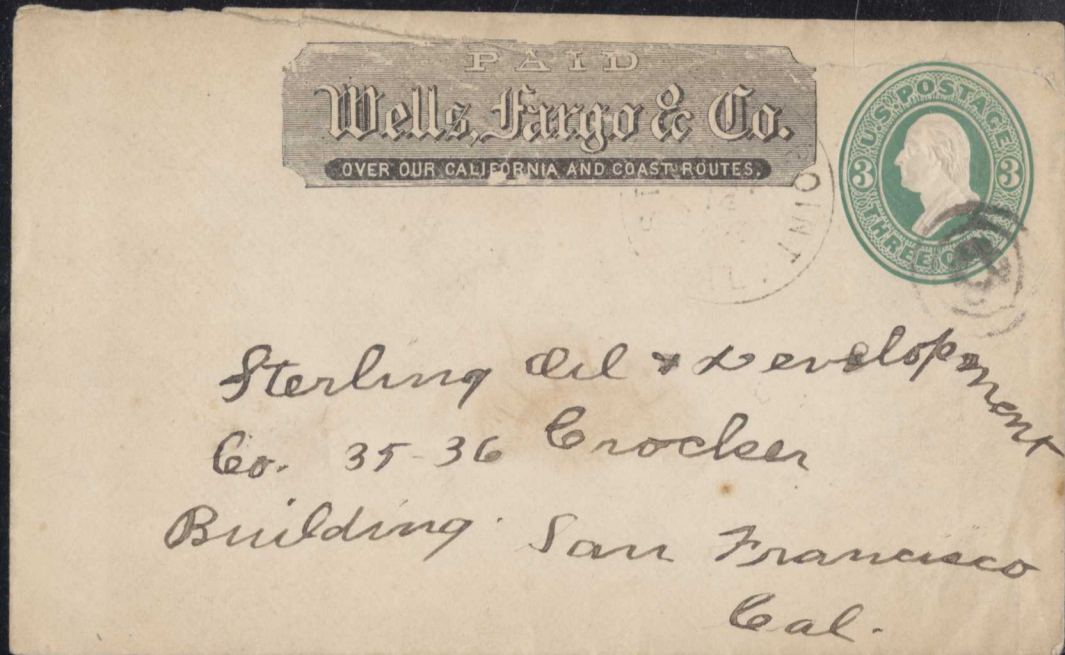 PAID
Wells, Fargo & Co.
OVER OUR CALIFORNIA AND COAST ROUTES.
U.S. POSTAGE
3 3
THREE
Sterling Oil & Development
Co. 35-36 Crocker
Building San Francisco
Cal.